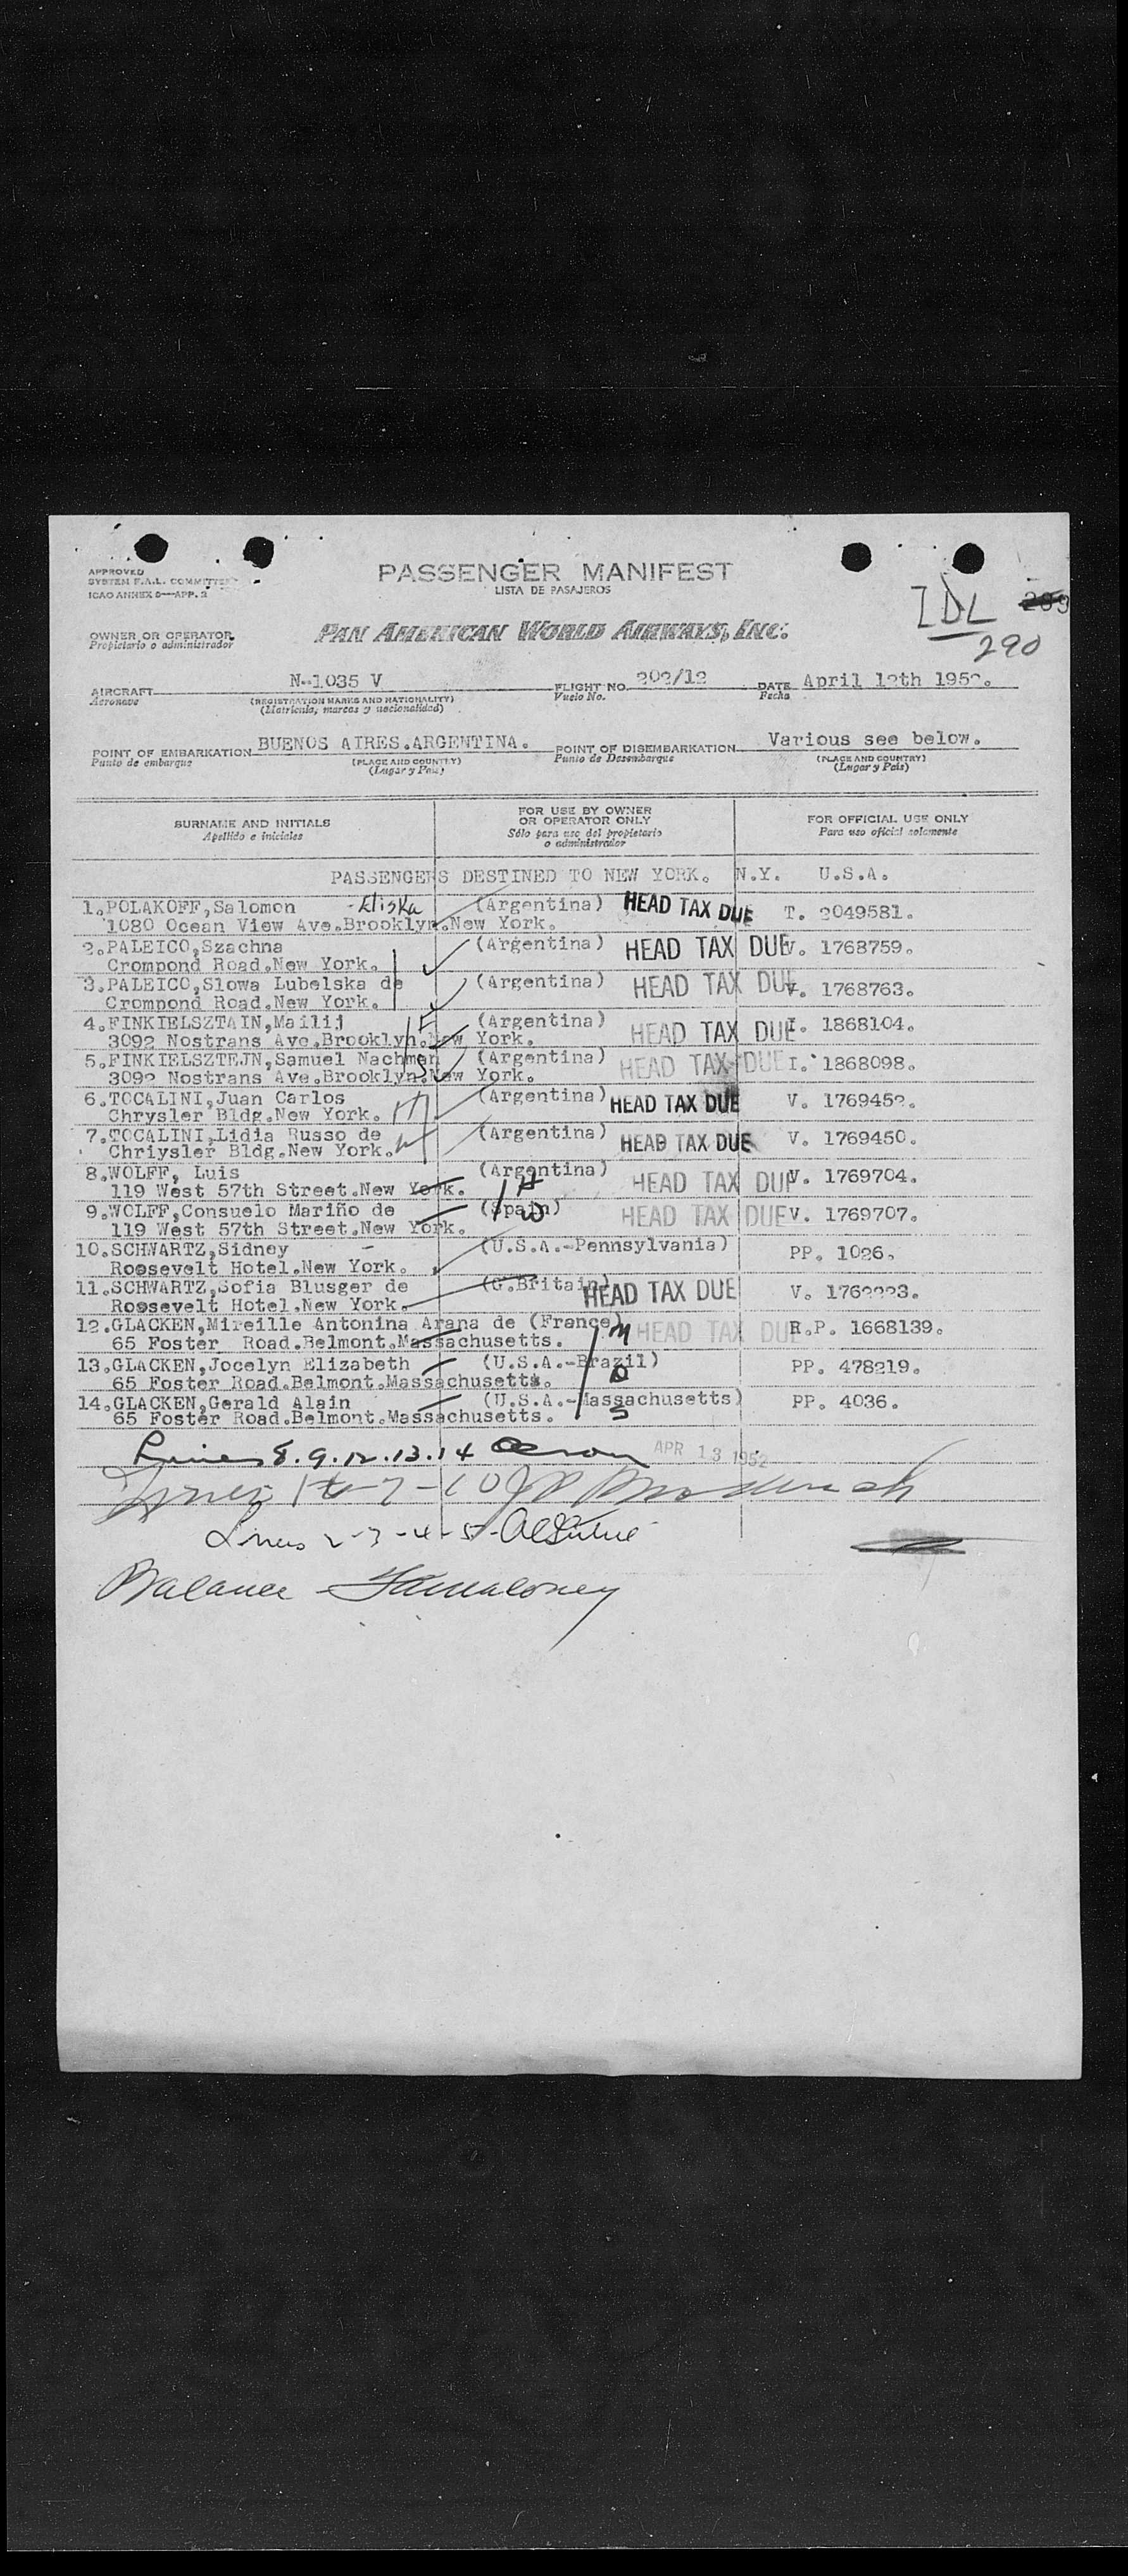 APPROVED
SYSTEM F.A.L. COMMITTEE
ICAO ANNEX 9—APP. 3
PASSENGER MANIFEST
LISTA DE PASAJEROS
IDL
290
OWNER OR OPERATOR
Propietario o administrador
PAN AMERICAN WORLD AIRWAYS, INC.
AIRCRAFT N-1035 V FLIGHT NO. 202/12 DATE April 12th 1952.
Aeronave (REGISTRATION MARKS AND NATIONALITY) Vuelo No. Fecha
(Matricula, marcas y nacionalidad)
POINT OF EMBARKATION BUENOS AIRES.ARGENTINA. POINT OF DISEMBARKATION Various see below.
Punto de embarque (PLACE AND COUNTRY) Punto de Desembarque (PLACE AND COUNTRY)
(Lugar y Pais) (Lugar y Pais)
SURNAME AND INITIALS FOR USE BY OWNER OR OPERATOR ONLY FOR OFFICIAL USE ONLY
Apellido e iniciales Sólo para uso del propietario o administrador Para uso oficial solamente
PASSENGERS DESTINED TO NEW YORK. N.Y. U.S.A.
1.POLAKOFF,Salomon - Eliska (Argentina) HEAD TAX DUE T. 2049581.
1080 Ocean View Ave.Brooklyn.New York.
2.PALEICO,Szachna (Argentina) HEAD TAX DUE V. 1768759.
Crompond Road.New York.
3.PALEICO,Slowa Lubelska de (Argentina) HEAD TAX DUE V. 1768763.
Crompond Road.New York.
4.FINKIELSZTAIN,Mailij (Argentina) HEAD TAX DUE I. 1868104.
3092 Nostrans Ave.Brooklyn.New York.
5.FINKIELSZTEJN,Samuel Nachmen (Argentina) HEAD TAX DUE I. 1868098.
3092 Nostrans Ave.Brooklyn.New York.
6.TOCALINI,Juan Carlos (Argentina) HEAD TAX DUE V. 1769452.
Chrysler Bldg.New York.
7.TOCALINI,Lidia Russo de (Argentina) HEAD TAX DUE V. 1769450.
Chriysler Bldg.New York.
8.WOLFF, Luis (Argentina) H HEAD TAX DUE V. 1769704.
119 West 57th Street.New York.
9.WOLFF,Consuelo Mariño de (Spain) W HEAD TAX DUE V. 1769707.
119 West 57th Street.New York.
10.SCHWARTZ,Sidney (U.S.A.-Pennsylvania) PP. 1026.
Roosevelt Hotel.New York.
11.SCHWARTZ,Sofia Blusger de (G.Britain) HEAD TAX DUE V. 1762223.
Roosevelt Hotel.New York.
12.GLACKEN,Mireille Antonina Arana de (France) M HEAD TAX DUE R.P. 1668139.
65 Foster Road.Belmont.Massachusetts.
13.GLACKEN,Jocelyn Elizabeth (U.S.A.-Brazil) D PP. 478219.
65 Foster Road.Belmont.Massachusetts.
14.GLACKEN,Gerald Alain (U.S.A.-Massachusetts) S PP. 4036.
65 Foster Road.Belmont.Massachusetts.
Lines 8.9.12.13.14 APR 13 1952
Lines 2-3-4-5-
Balance